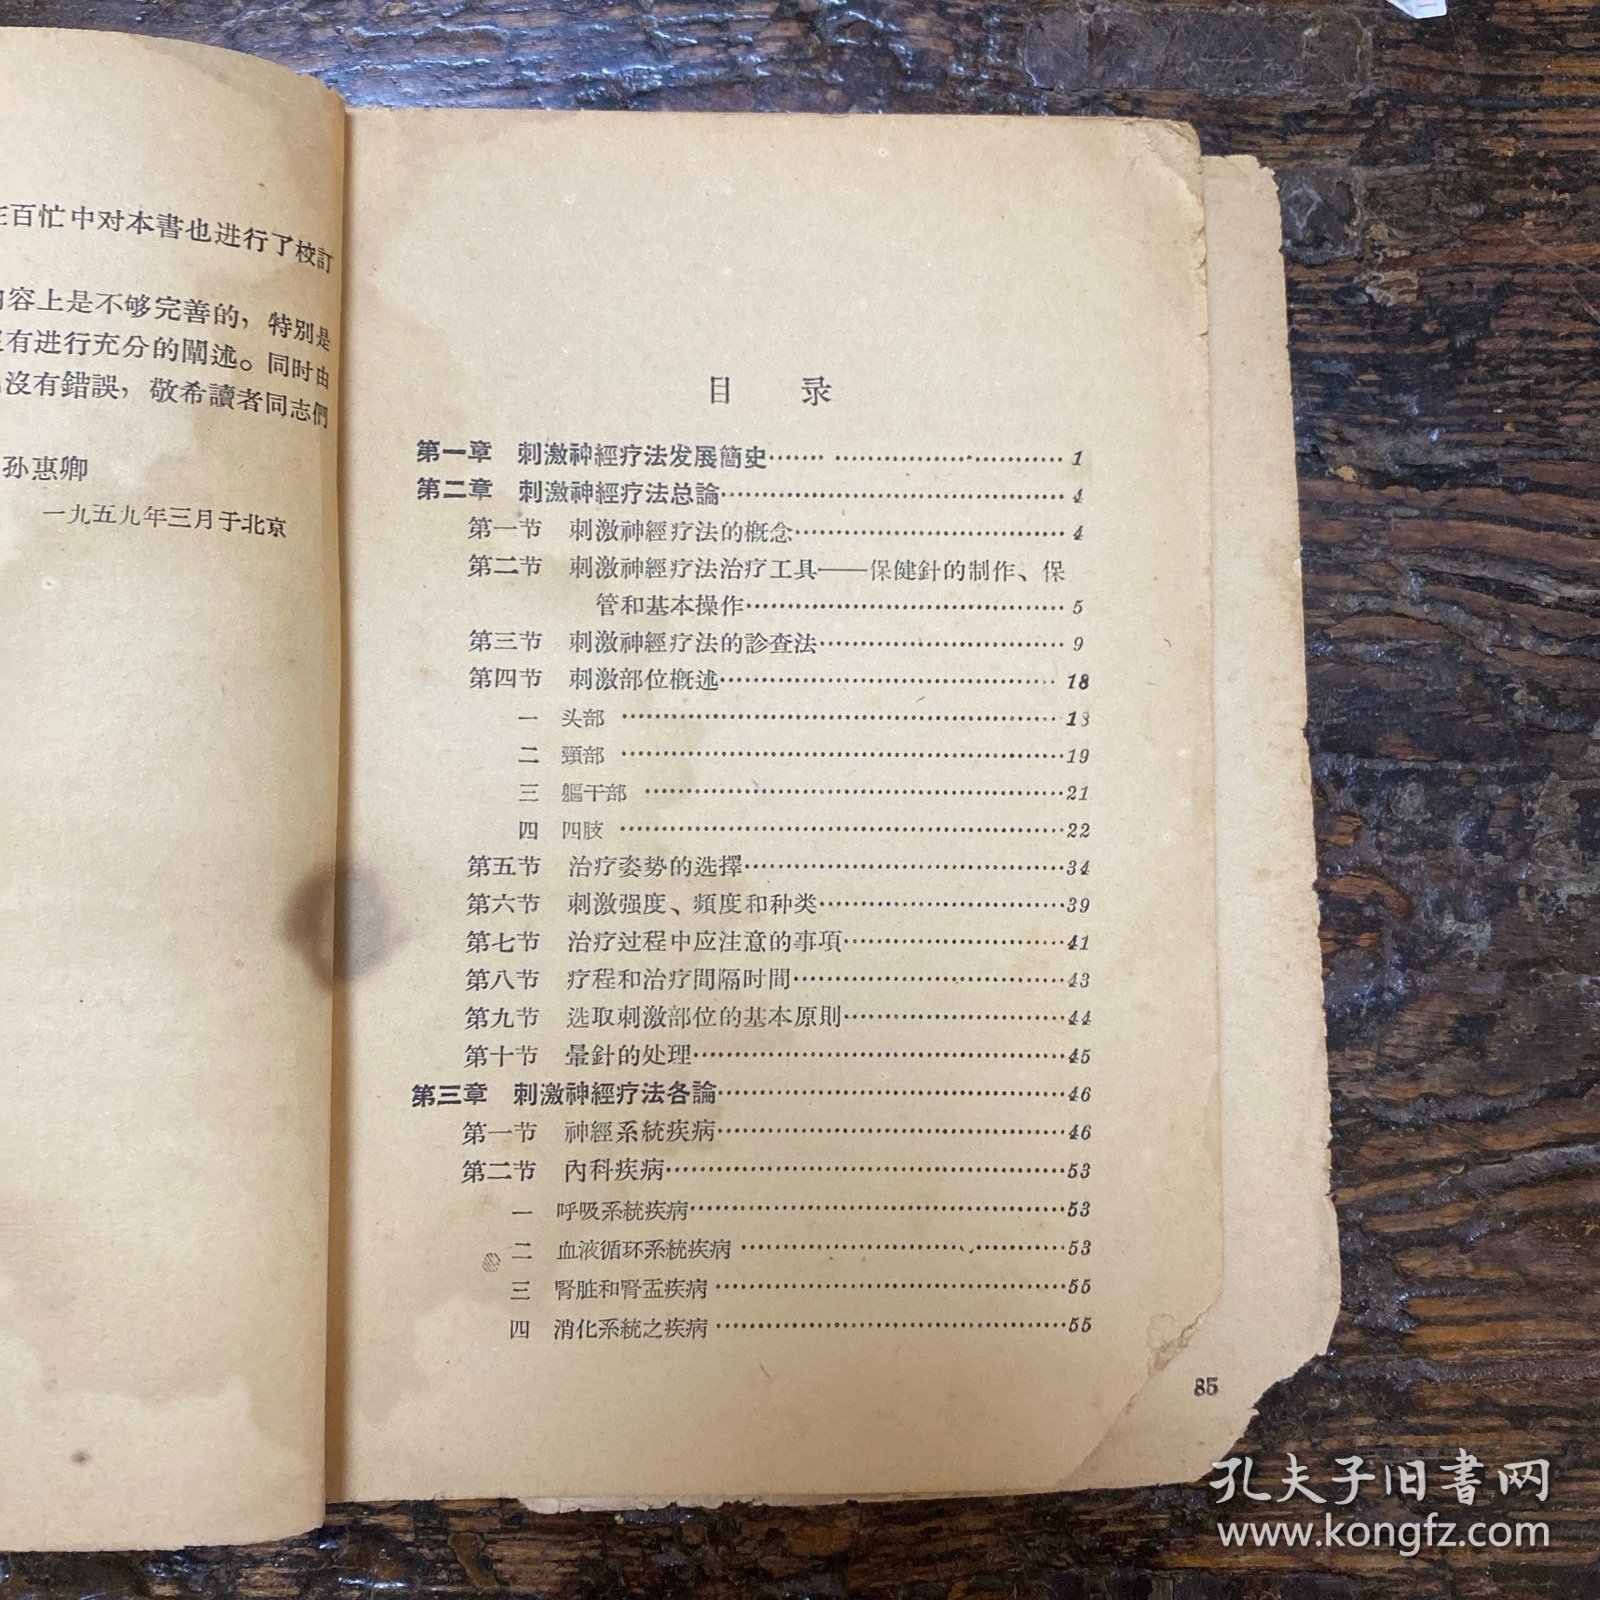 百忙中对本書也进行了校訂
容上是不够完善的，特別是
有进行充分的闡述。同时由
沒有錯誤，敬希讀者同志們
孙惠卿
一九五九年三月于北京
目 录
第一章 刺激神經疗法发展簡史…… ……………………1
第二章 刺激神經疗法总論……………………………4
第一节 刺激神經疗法的概念……………………………4
第二节 刺激神經疗法治疗工具——保健針的制作、保
管和基本操作……………………………5
第三节 刺激神經疗法的診查法……………………………9
第四节 刺激部位概述……………………………18
一 头部 ……………………………18
二 頸部 ……………………………19
三 軀干部 ……………………………21
四 四肢 ……………………………22
第五节 治疗姿势的选擇……………………………34
第六节 刺激强度、頻度和种类……………………………39
第七节 治疗过程中应注意的事項……………………………41
第八节 疗程和治疗間隔时間……………………………43
第九节 选取刺激部位的基本原則……………………………44
第十节 暈針的处理……………………………45
第三章 刺激神經疗法各論……………………………46
第一节 神經系統疾病……………………………46
第二节 內科疾病……………………………53
一 呼吸系統疾病……………………………53
二 血液循环系統疾病……………………………53
三 腎脏和腎盂疾病……………………………55
四 消化系統之疾病……………………………55
85
孔夫子旧書网
www.kongfz.com